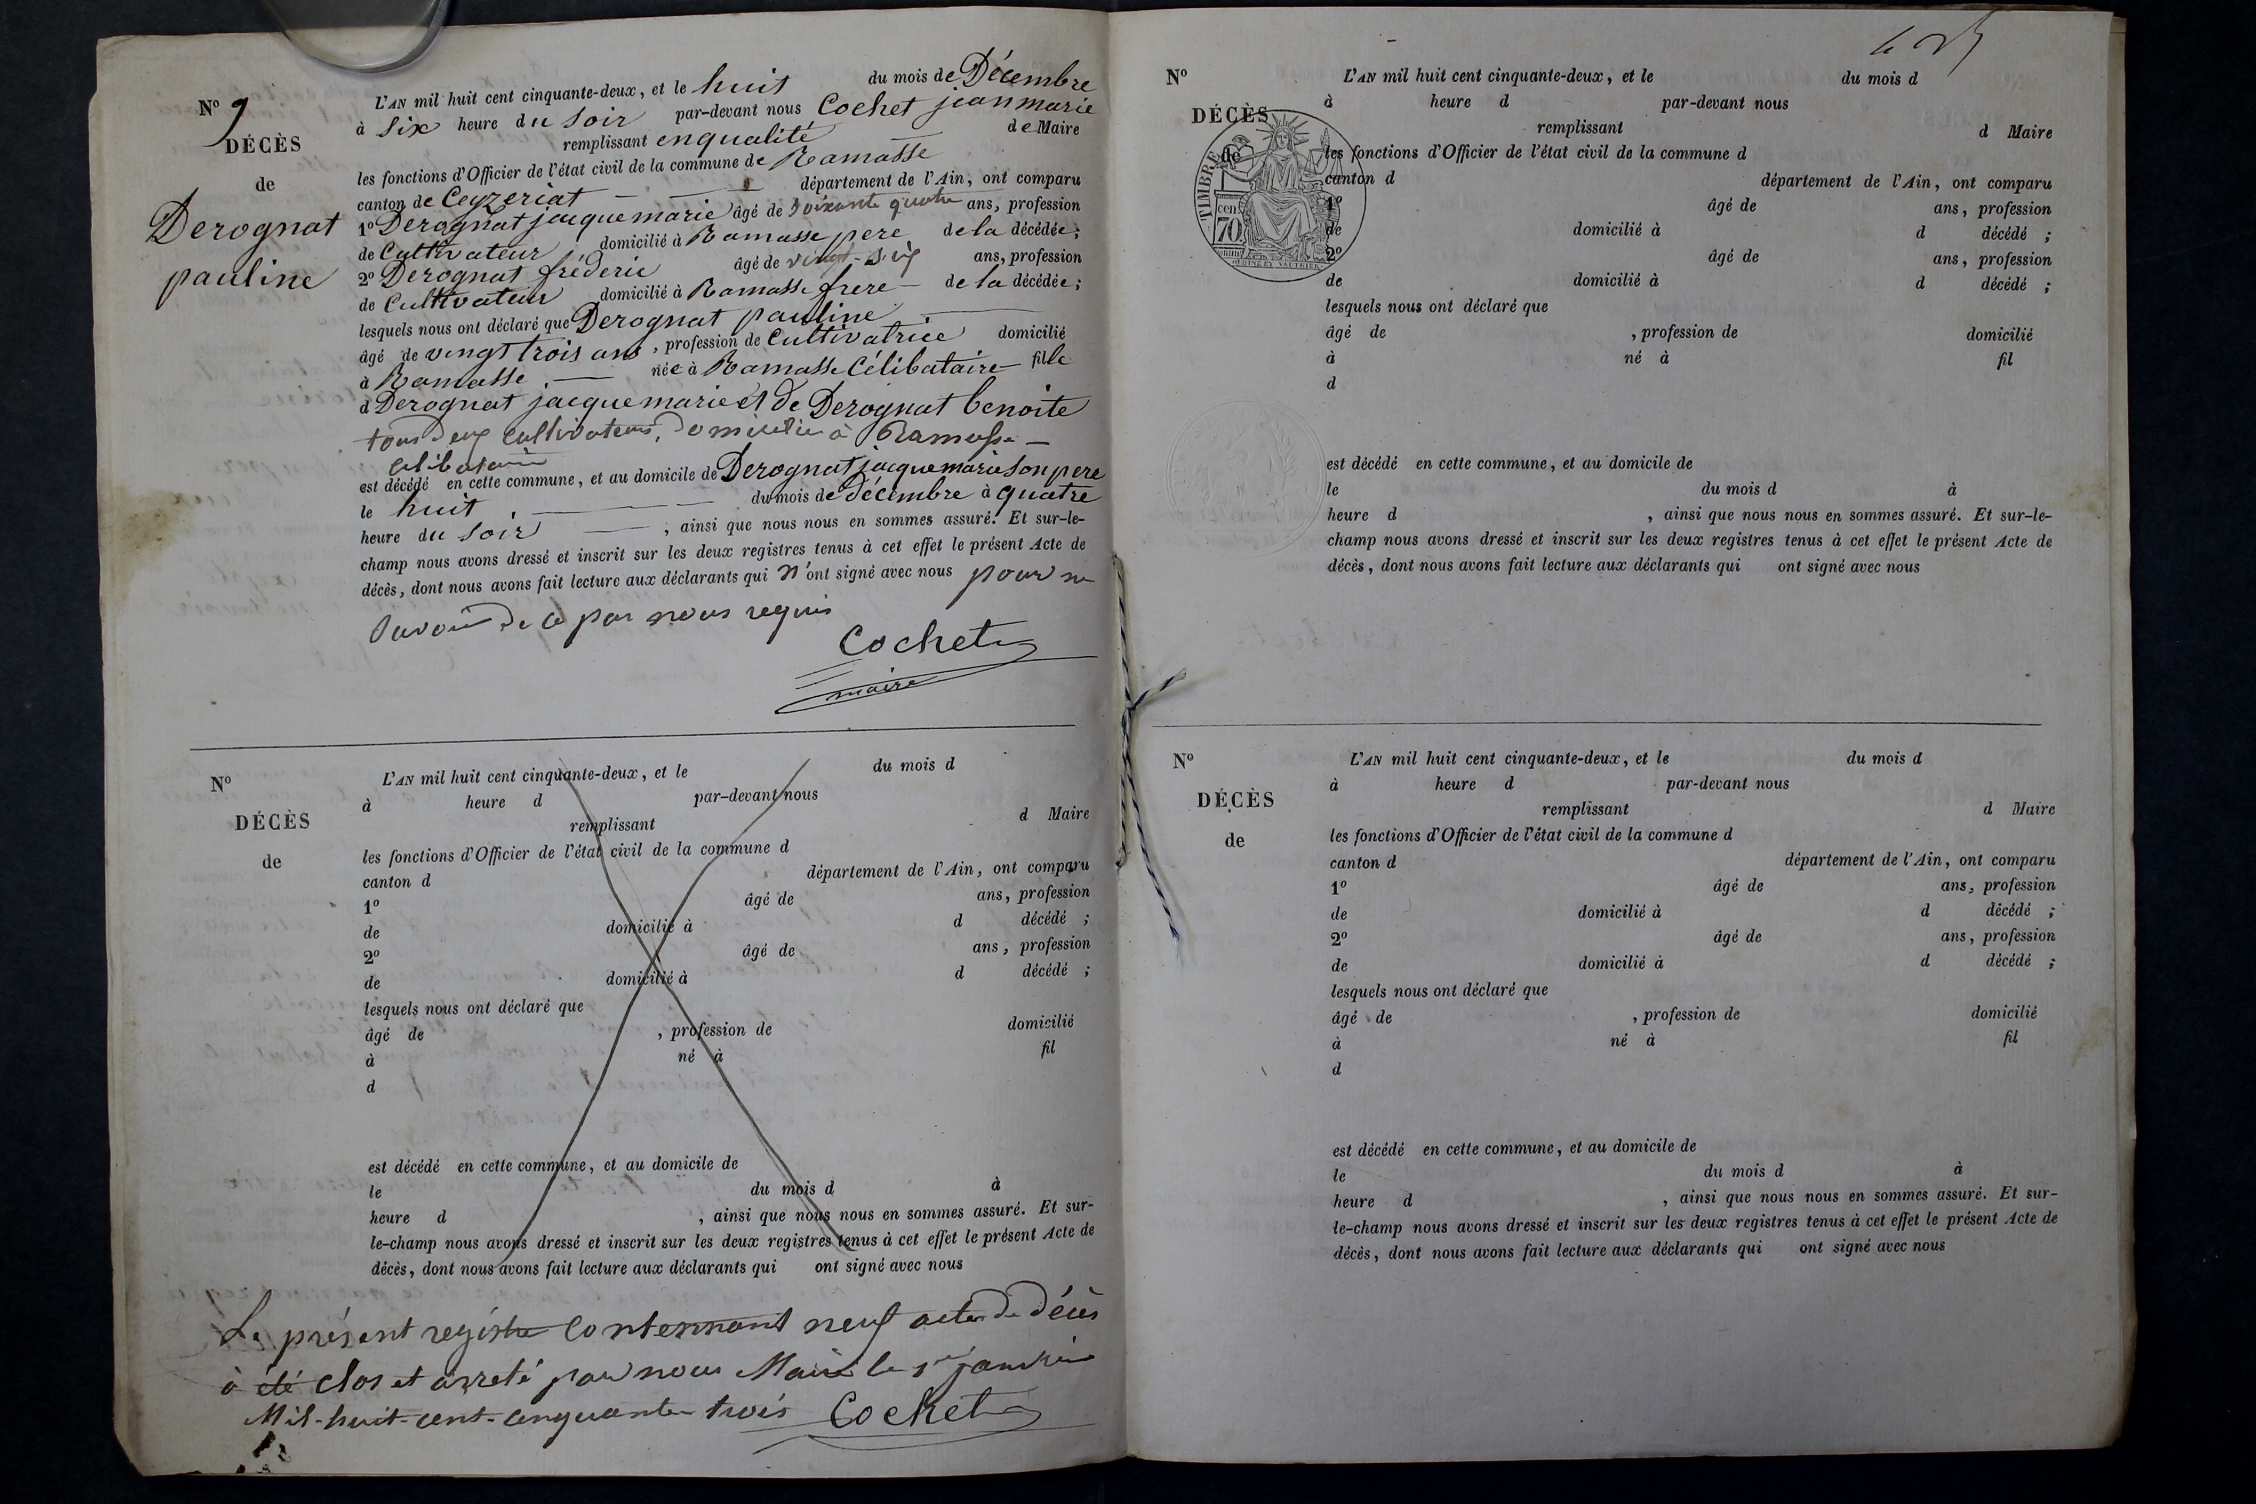 N° 9
DÉCÈS
de
Derognat
pauline
L'AN mil huit cent cinquante-deux, et le huit du mois de Décembre
à Six heure du Soir par-devant nous Cochet jean marie
remplissant en qualité de Maire
les fonctions d'Officier de l'état civil de la commune de Ramasse
canton de Ceyzeriat département de l'Ain, ont comparu
1° Derognat jacque marie âgé de Soixante quatre ans, profession
de Cultivateur domicilié à Ramasse pere de la décédée;
2° Derognat fréderic âgé de vingt-Six ans, profession
de Cultivateur domicilié à Ramasse frere de la décédée;
lesquels nous ont déclaré que Derognat pauline
âgé de vingt trois ans, profession de Cultivatrice domicilié
à Ramasse née à Ramasse Célibataire fille
d Derognat jacque marie et de Derognat benoite
tous deux cultivateurs, domicilié à Ramasse
celibataire
est décédé en cette commune, et au domicile de Derognat jacque marie Son pere
le huit du mois de décembre à quatre
heure du Soir, ainsi que nous nous en sommes assuré. Et sur-le-
champ nous avons dressé et inscrit sur les deux registres tenus à cet effet le présent Acte de
décès, dont nous avons fait lecture aux déclarants qui n'ont signé avec nous pour ne
Savoir de ce par nous requis
Cochet
maire
N°
DÉCÈS
de
L'AN mil huit cent cinquante-deux, et le du mois d
à heure d par-devant nous
remplissant d Maire
les fonctions d'Officier de l'état civil de la commune d
canton d département de l'Ain, ont comparu
1° âgé de ans, profession
de domicilié à d décédé ;
2° âgé de ans, profession
de domicilié à d décédé ;
lesquels nous ont déclaré que
âgé de , profession de domicilié
à né à fil
d
est décédé en cette commune, et au domicile de
le du mois d à
heure d , ainsi que nous nous en sommes assuré. Et sur-
le-champ nous avons dressé et inscrit sur les deux registres tenus à cet effet le présent Acte de
décès, dont nous avons fait lecture aux déclarants qui ont signé avec nous
Le présent registre contennant neuf actes de Décès
à été clos et arreté par nous Maire le 1er janvier
Mil-huit-cent-cinquante-trois Cochet
N°
DÉCÈS
de
TIMBRE
cen
70
L'AN mil huit cent cinquante-deux, et le du mois d
à heure d par-devant nous
remplissant d Maire
les fonctions d'Officier de l'état civil de la commune d
canton d département de l'Ain, ont comparu
1° âgé de ans, profession
de domicilié à d décédé ;
2° âgé de ans, profession
de domicilié à d décédé ;
lesquels nous ont déclaré que
âgé de , profession de domicilié
à né à fil
d
est décédé en cette commune, et au domicile de
le du mois d à
heure d , ainsi que nous nous en sommes assuré. Et sur-le-
champ nous avons dressé et inscrit sur les deux registres tenus à cet effet le présent Acte de
décès, dont nous avons fait lecture aux déclarants qui ont signé avec nous
N°
DÉCÈS
de
L'AN mil huit cent cinquante-deux, et le du mois d
à heure d par-devant nous
remplissant d Maire
les fonctions d'Officier de l'état civil de la commune d
canton d département de l'Ain, ont comparu
1° âgé de ans, profession
de domicilié à d décédé ;
2° âgé de ans, profession
de domicilié à d décédé ;
lesquels nous ont déclaré que
âgé de , profession de domicilié
à né à fil
d
est décédé en cette commune, et au domicile de
le du mois d à
heure d , ainsi que nous nous en sommes assuré. Et sur-
le-champ nous avons dressé et inscrit sur les deux registres tenus à cet effet le présent Acte de
décès, dont nous avons fait lecture aux déclarants qui ont signé avec nous